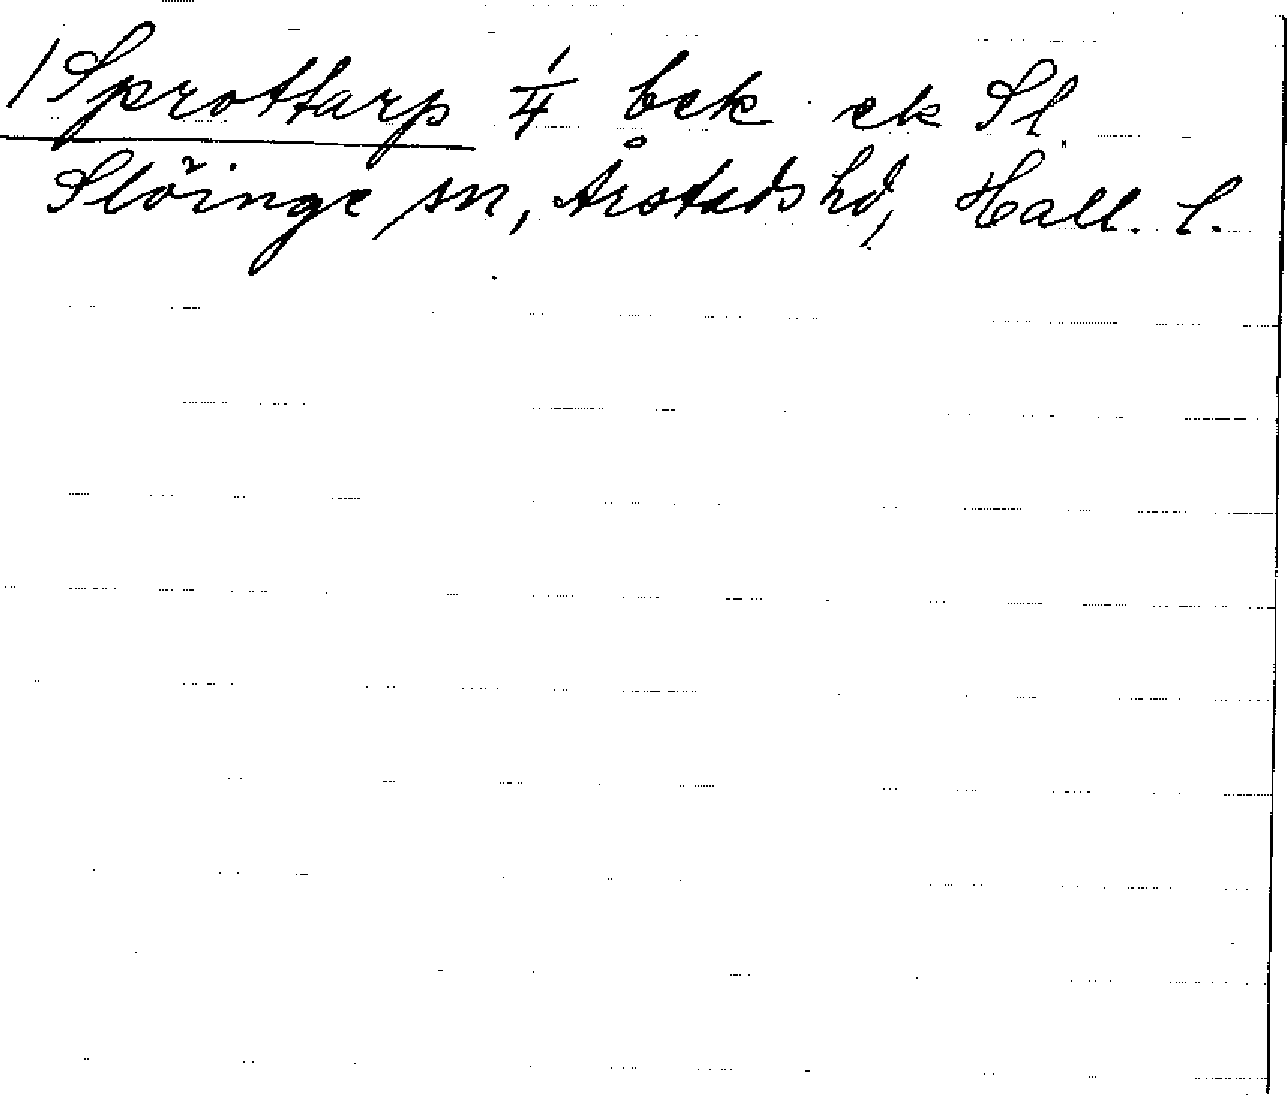 /Sprottarp 1/4 bek ek Sl.
Slöinge sn, Årstads hd, Hall. l.